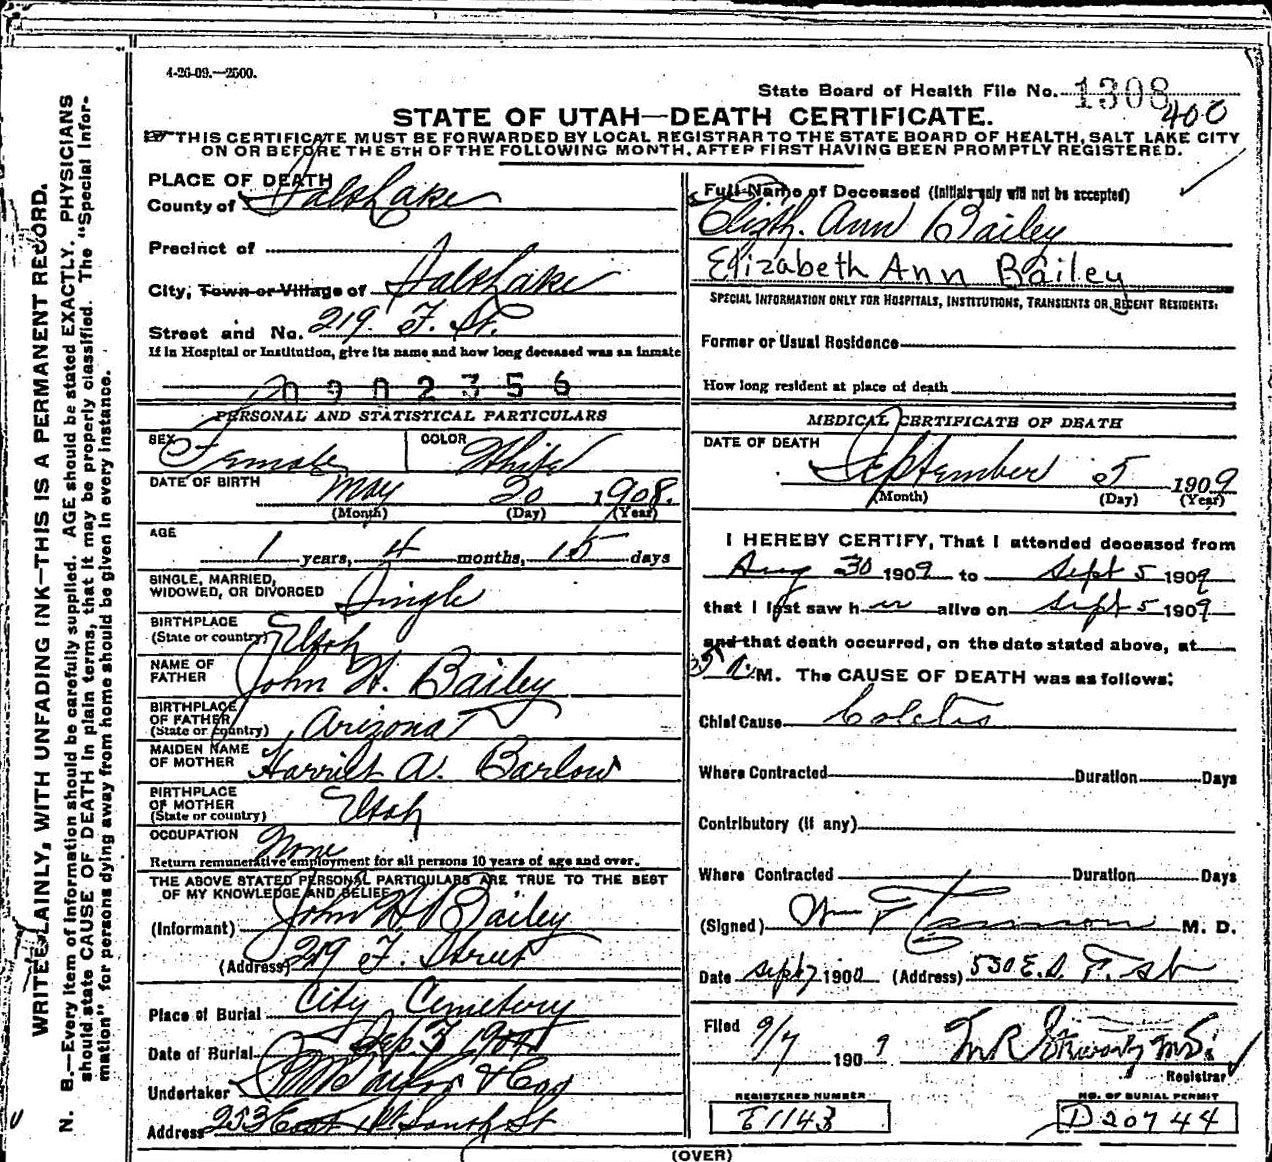 4-26-09.—2500.
State Board of Health File No. 1308
400
STATE OF UTAH—DEATH CERTIFICATE.
THIS CERTIFICATE MUST BE FORWARDED BY LOCAL REGISTRAR TO THE STATE BOARD OF HEALTH, SALT LAKE CITY
ON OR BEFORE THE 5TH OF THE FOLLOWING MONTH, AFTER FIRST HAVING BEEN PROMPTLY REGISTERED.
WRITE PLAINLY, WITH UNFADING INK—THIS IS A PERMANENT RECORD.
N. B.—Every item of information should be carefully supplied. AGE should be stated EXACTLY. PHYSICIANS
should state CAUSE OF DEATH in plain terms, that it may be properly classified. The "Special Infor-
mation" for persons dying away from home should be given in every instance.
PLACE OF DEATH
County of Salt Lake
Precinct of
City, Town or Village of Salt Lake
Street and No. 219 F. St.
If in Hospital or Institution, give its name and how long deceased was an inmate
0902356
PERSONAL AND STATISTICAL PARTICULARS
SEX Female COLOR White
DATE OF BIRTH May 20 1908.
(Month) (Day) (Year)
AGE 1 years, 4 months, 15 days
SINGLE, MARRIED,
WIDOWED, OR DIVORCED Single
BIRTHPLACE
(State or country) Utah
NAME OF
FATHER John H. Bailey
BIRTHPLACE
OF FATHER
(State or country) Arizona
MAIDEN NAME
OF MOTHER Harriet A. Barlow
BIRTHPLACE
OF MOTHER
(State or country) Utah
OCCUPATION None
Return remunerative employment for all persons 10 years of age and over.
THE ABOVE STATED PERSONAL PARTICULARS ARE TRUE TO THE BEST
OF MY KNOWLEDGE AND BELIEF
(Informant) John H. Bailey
(Address) 219 F. Street
Place of Burial City Cemetery
Date of Burial Sep. 7 1909
Undertaker Taylor & Co
Address 253 East 1st South St
Full Name of Deceased (Initials only will not be accepted)
Elizth. Ann Bailey
Elizabeth Ann Bailey
SPECIAL INFORMATION ONLY FOR HOSPITALS, INSTITUTIONS, TRANSIENTS OR RECENT RESIDENTS:
Former or Usual Residence
How long resident at place of death
MEDICAL CERTIFICATE OF DEATH
DATE OF DEATH
September 5 1909
(Month) (Day) (Year)
I HEREBY CERTIFY, That I attended deceased from
Aug 30 1909 to Sept 5 1909
that I last saw her alive on Sept 5 1909
and that death occurred, on the date stated above, at
M. The CAUSE OF DEATH was as follows:
Chief Cause Colitis
Where Contracted Duration Days
Contributory (if any)
Where Contracted Duration Days
(Signed) Wm F M. D.
Date Sept 7 1909 (Address) 530 E. St
Filed 9/7 1909
Registrar
REGISTERED NUMBER
E1143
NO. OF BURIAL PERMIT
D20744
(OVER)